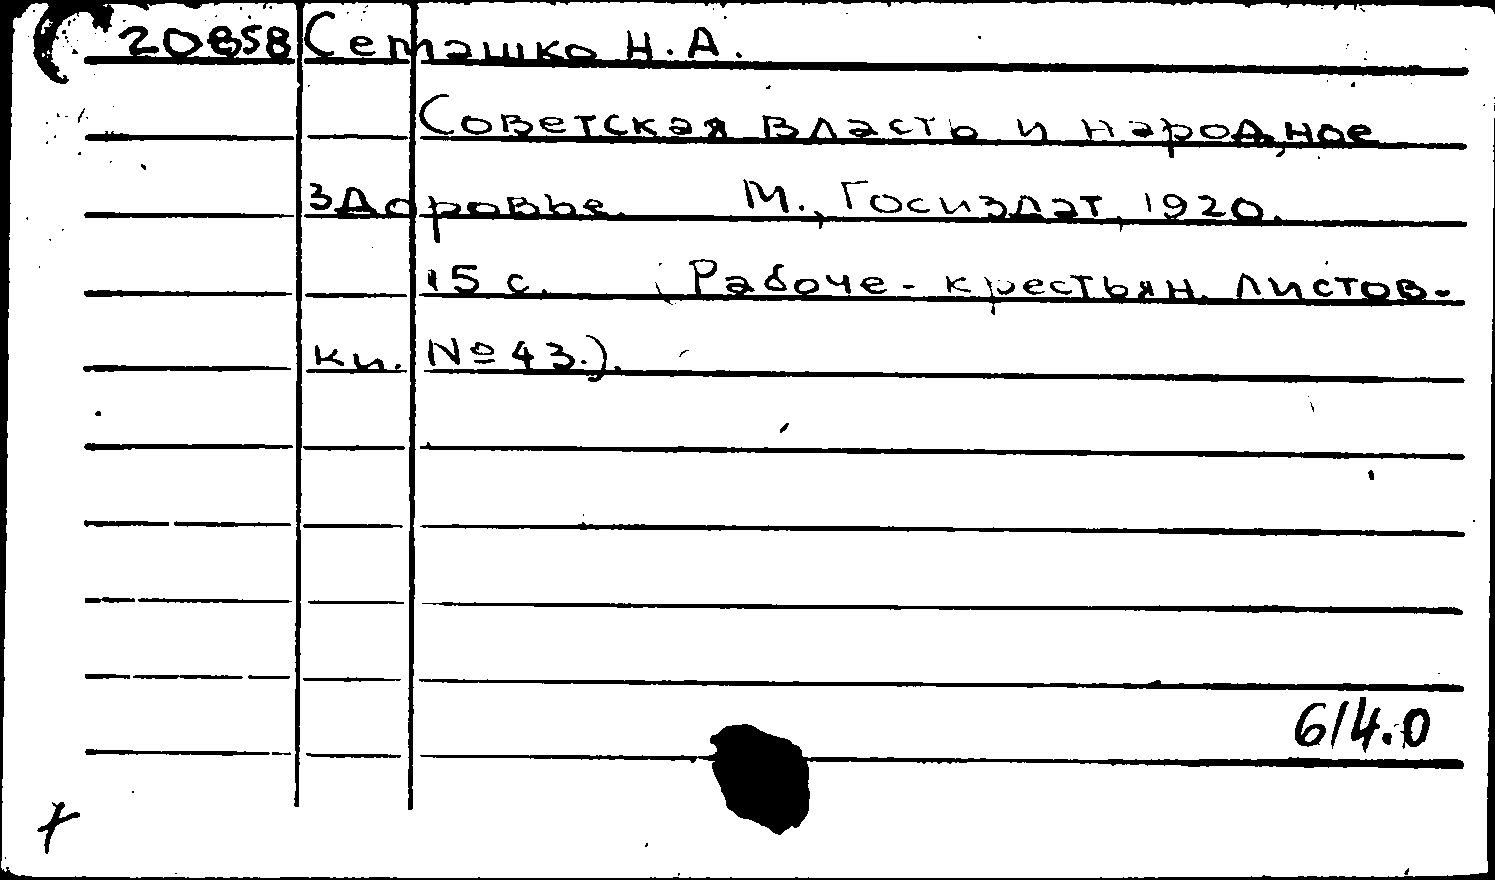 20858 Семашко Н.А.
Советская власть и народное
здоровье. М., Госиздат, 1920.
15 с. (Рабоче-крестьян. листов-
ки. № 43.).
614.0